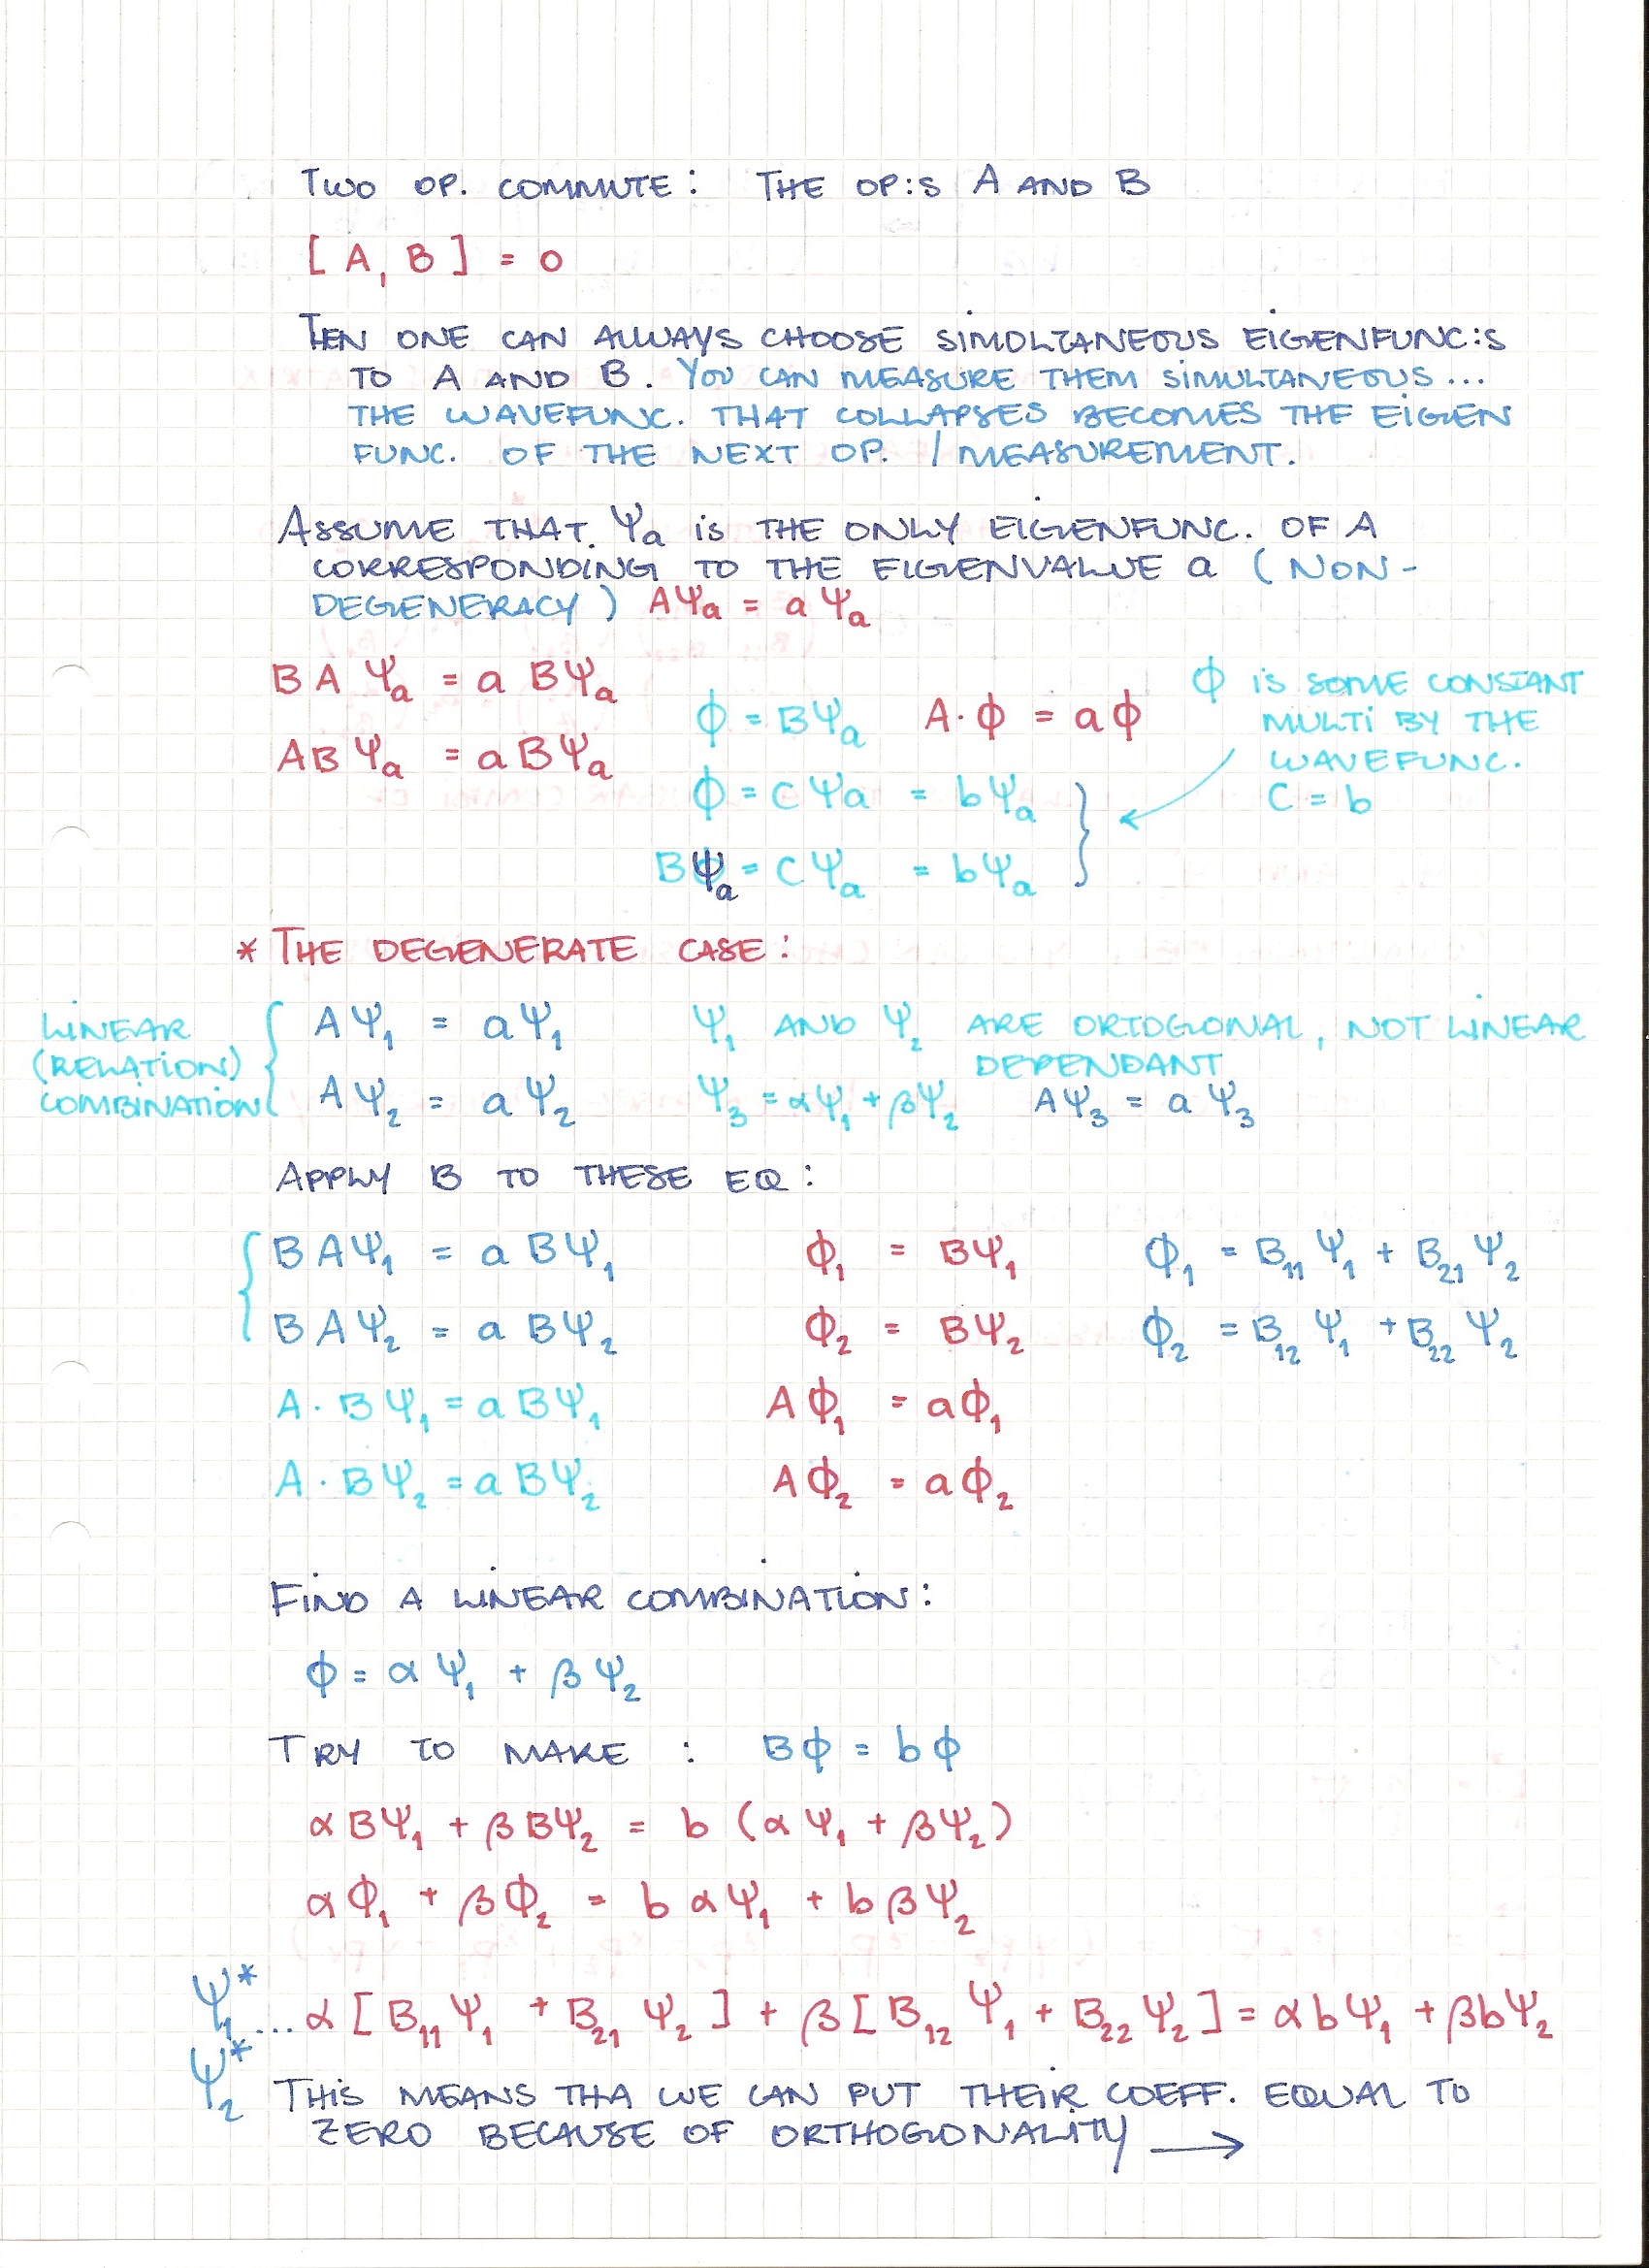 TWO OP. COMMUTE: THE OP:S A AND B
[A, B] = 0
THEN ONE CAN ALWAYS CHOOSE SIMOLTANEOUS EIGENFUNC:S
TO A AND B. YOU CAN MEASURE THEM SIMULTANEOUS...
THE WAVEFUNC. THAT COLLAPSES BECOMES THE EIGEN
FUNC. OF THE NEXT OP. / MEASUREMENT.
ASSUME THAT Ψa IS THE ONLY EIGENFUNC. OF A
CORRESPONDING TO THE EIGENVALUE a (NON-
DEGENERACY) AΨa = aΨa
BAΨa = aBΨa
ABΨa = aBΨa
ϕ = BΨa A·ϕ = aϕ
ϕ = CΨa = bΨa
BΨa = CΨa = bΨa
ϕ IS SOME CONSTANT
MULTI BY THE
WAVEFUNC.
C = b
* THE DEGENERATE CASE:
LINEAR
(RELATION)
COMBINATION
AΨ1 = aΨ1 Ψ1 AND Ψ2 ARE ORTOGONAL, NOT LINEAR
DEPENDANT
AΨ2 = aΨ2 Ψ3 = αΨ1 + βΨ2 AΨ3 = aΨ3
APPLY B TO THESE EQ:
BAΨ1 = aBΨ1 ϕ1 = BΨ1 ϕ1 = B11Ψ1 + B21Ψ2
BAΨ2 = aBΨ2 ϕ2 = BΨ2 ϕ2 = B12Ψ1 + B22Ψ2
A·BΨ1 = aBΨ1 Aϕ1 = aϕ1
A·BΨ2 = aBΨ2 Aϕ2 = aϕ2
FIND A LINEAR COMBINATION:
ϕ = αΨ1 + βΨ2
TRY TO MAKE: Bϕ = bϕ
αBΨ1 + βBΨ2 = b(αΨ1 + βΨ2)
αϕ1 + βϕ2 = bαΨ1 + bβΨ2
Ψ1* ... α[B11Ψ1 + B21Ψ2] + β[B12Ψ1 + B22Ψ2] = αbΨ1 + βbΨ2
Ψ2*
THIS MEANS THA WE CAN PUT THEIR COEFF. EQUAL TO
ZERO BECAUSE OF ORTHOGONALITY →